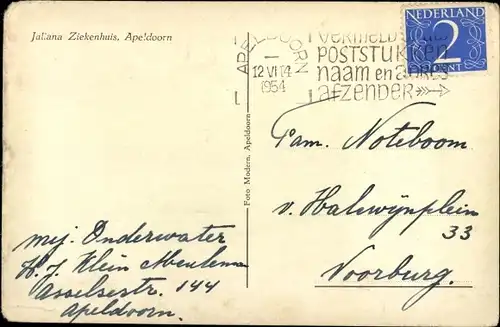 Juliana Ziekenhuis, Apeldoorn
APELDOORN
12 VI 14
1954
VERMELD
POSTSTUKKEN
naam en adres
afzender
NEDERLAND
2
CENT
Foto Modern, Apeldoorn
Fam. Noteboom
v. Halewijnplein
33
Voorburg.
mej. Onderwater
H. J. Klein Meuleman
Asselsestr. 144
Apeldoorn.